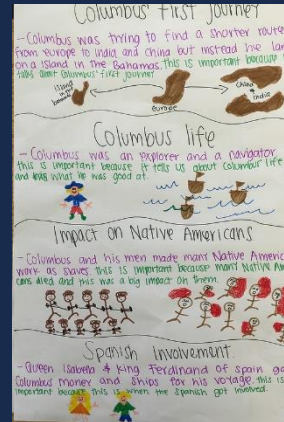 Columbus' first journey
-Columbus was trying to find a shorter route
from europe to india and china but instead He lan
on a Island in the Bahamas. This is important because
talks about Columbus' first journey
island
in
china
india
europe
Columbus life
-Columbus was an explorer and a navigator
this is important because it tells us about Columbus' life
and what He was good at.
Impact on Native Americans
-Columbus and his men made many Native Americ
work as slaves. this is important because many Native Am
cans died and this was a big impact on them.
Spanish Involvement
-Queen Isabella & King Ferdinand of Spain ga
Columbus money and ships for his voyage. this is
important because this is when the spanish got involved.